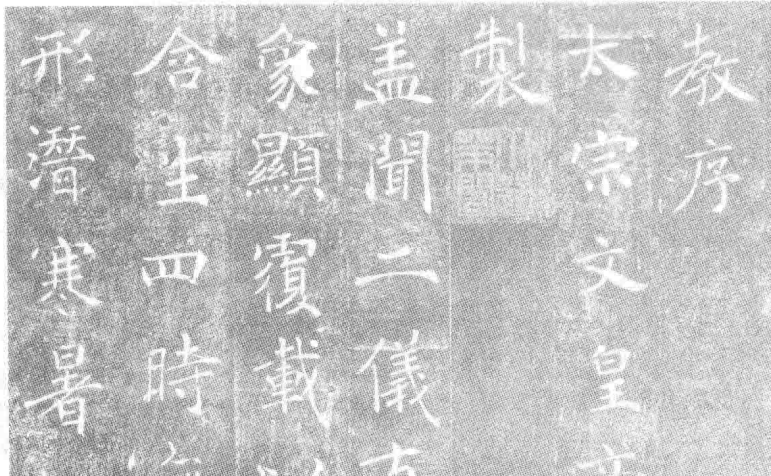 教序
太宗文皇帝
製
蓋聞二儀有
象顯覆載以
含生四時無
形潛寒暑